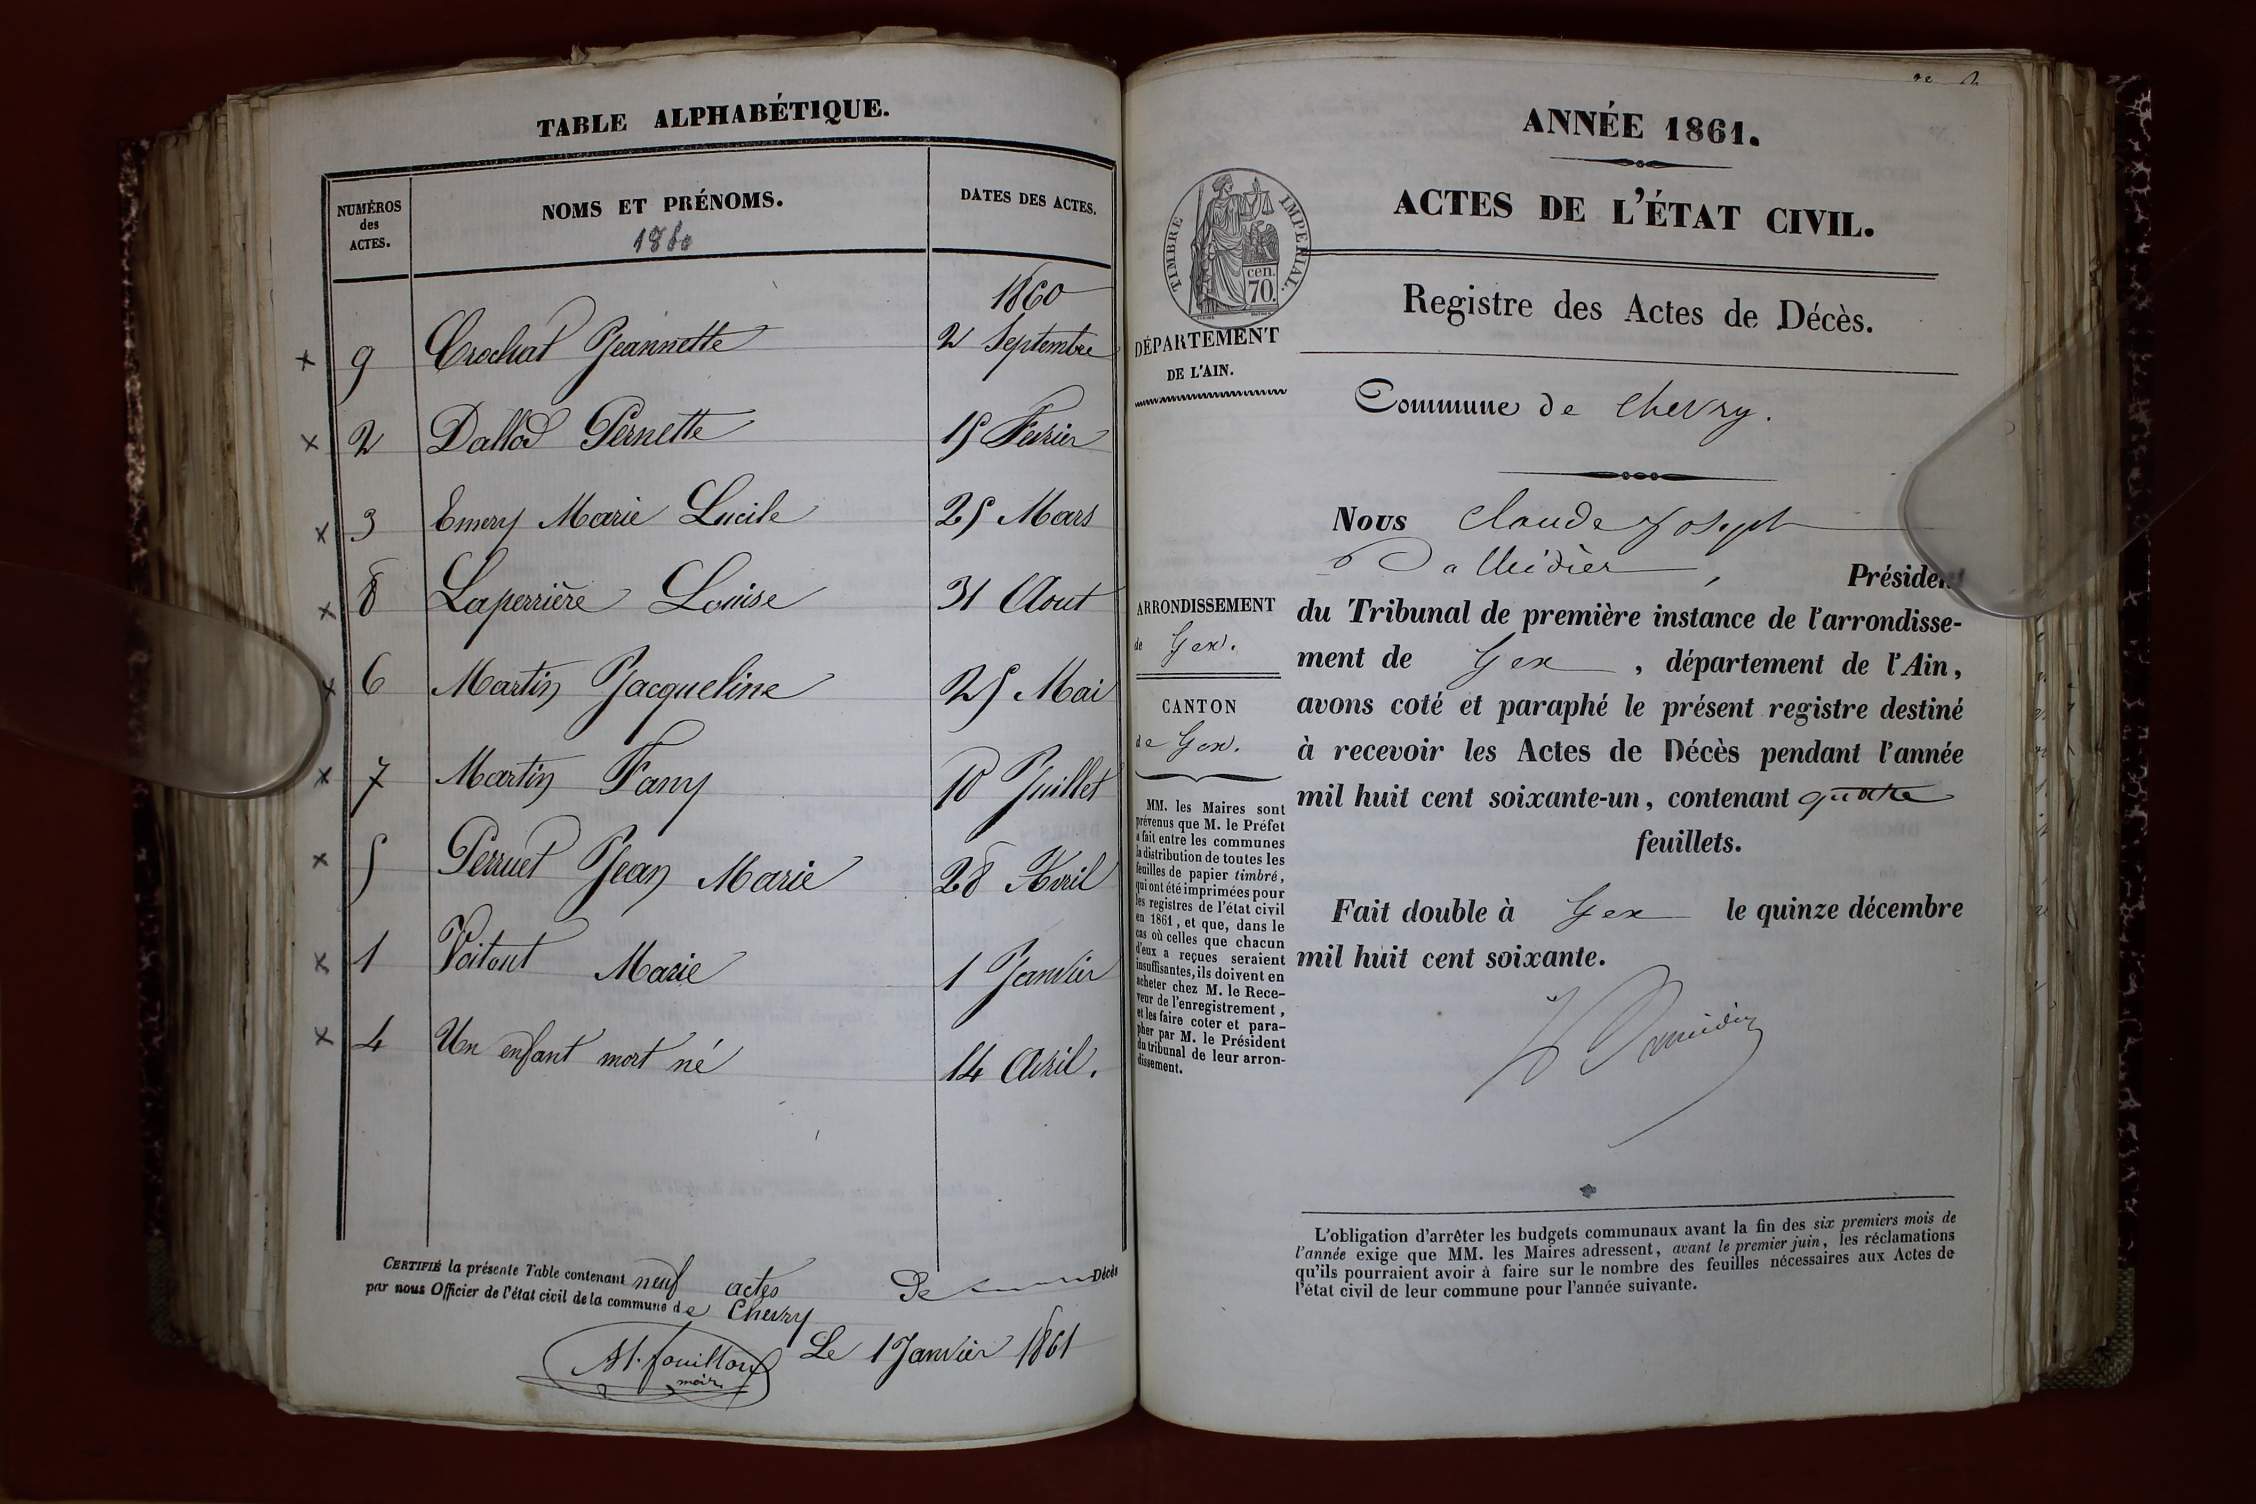 TABLE ALPHABÉTIQUE.
NUMÉROS des ACTES.
NOMS ET PRÉNOMS.
1860
DATES DES ACTES.
1860
x 9 Crochat Jeannette 2 Septembre
x 2 Dallod Pernette 15 Fevrier
x 3 Emery Marie Lucile 25 Mars
x 8 Laperrière Louise 31 Aout
x 6 Martin Jacqueline 25 Mai
x 7 Martin Fany 10 Juillet
x 5 Perruet Jean Marie 28 Avril
x 1 Marie 1 Janvier
x 4 Un enfant mort né 14 Avril.
CERTIFIÉ la présente Table contenant neuf actes De Décès
par nous Officier de l'état civil de la commune de Chevry
Le 1 Janvier 1861
maire
ANNÉE 1861.
ACTES DE L'ÉTAT CIVIL.
TIMBRE IMPÉRIAL.
cen.
70.
DÉPARTEMENT
DE L'AIN.
Registre des Actes de Décès.
Commune de Chevry.
Nous Claude Joseph
Président
du Tribunal de première instance de l'arrondisse-
ment de Gex, département de l'Ain,
avons coté et paraphé le présent registre destiné
à recevoir les Actes de Décès pendant l'année
mil huit cent soixante-un, contenant quatre
feuillets.
Fait double à Gex le quinze décembre
mil huit cent soixante.
ARRONDISSEMENT
de Gex.
CANTON
de Gex.
MM. les Maires sont
prévenus que M. le Préfet
a fait entre les communes
la distribution de toutes les
feuilles de papier timbré,
qui ont été imprimées pour
les registres de l'état civil
en 1861, et que, dans le
cas où celles que chacun
d'eux a reçues seraient
insuffisantes, ils doivent en
acheter chez M. le Rece-
veur de l'enregistrement,
et les faire coter et para-
pher par M. le Président
du tribunal de leur arron-
dissement.
L'obligation d'arrêter les budgets communaux avant la fin des six premiers mois de
l'année exige que MM. les Maires adressent, avant le premier juin, les réclamations
qu'ils pourraient avoir à faire sur le nombre des feuilles nécessaires aux Actes de
l'état civil de leur commune pour l'année suivante.